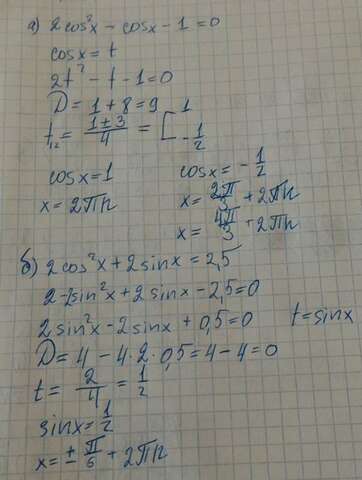 а) 2cos²x - cosx - 1 = 0
cosx = t
2t² - t - 1 = 0
D = 1 + 8 = 9
t₁₂ = (1 ± 3)/4 = [ 1
- 1/2
cosx = 1 cosx = - 1/2
x = 2πn x = 2π/3 + 2πn
x = 4π/3 + 2πn
б) 2cos²x + 2sinx = 2,5
2 - 2sin²x + 2sinx - 2,5 = 0
2sin²x - 2sinx + 0,5 = 0 t = sinx
D = 4 - 4·2·0,5 = 4 - 4 = 0
t = 2/4 = 1/2
sinx = 1/2
x = ± π/6 + 2πn